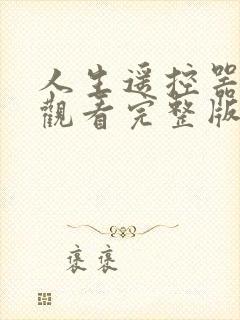 人生遥控器
觀看完整版
褒褒